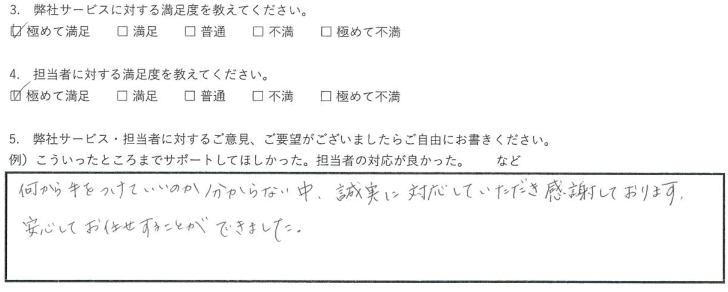 3. 弊社サービスに対する満足度を教えてください。
☑ 極めて満足 □ 満足 □ 普通 □ 不満 □ 極めて不満
4. 担当者に対する満足度を教えてください。
☑ 極めて満足 □ 満足 □ 普通 □ 不満 □ 極めて不満
5. 弊社サービス・担当者に対するご意見、ご要望がございましたらご自由にお書きください。
例）こういったところまでサポートしてほしかった。担当者の対応が良かった。 など
何から手をつけていいのか分からない中、誠実に対応していただき感謝しております。
安心してお任せすることができました。